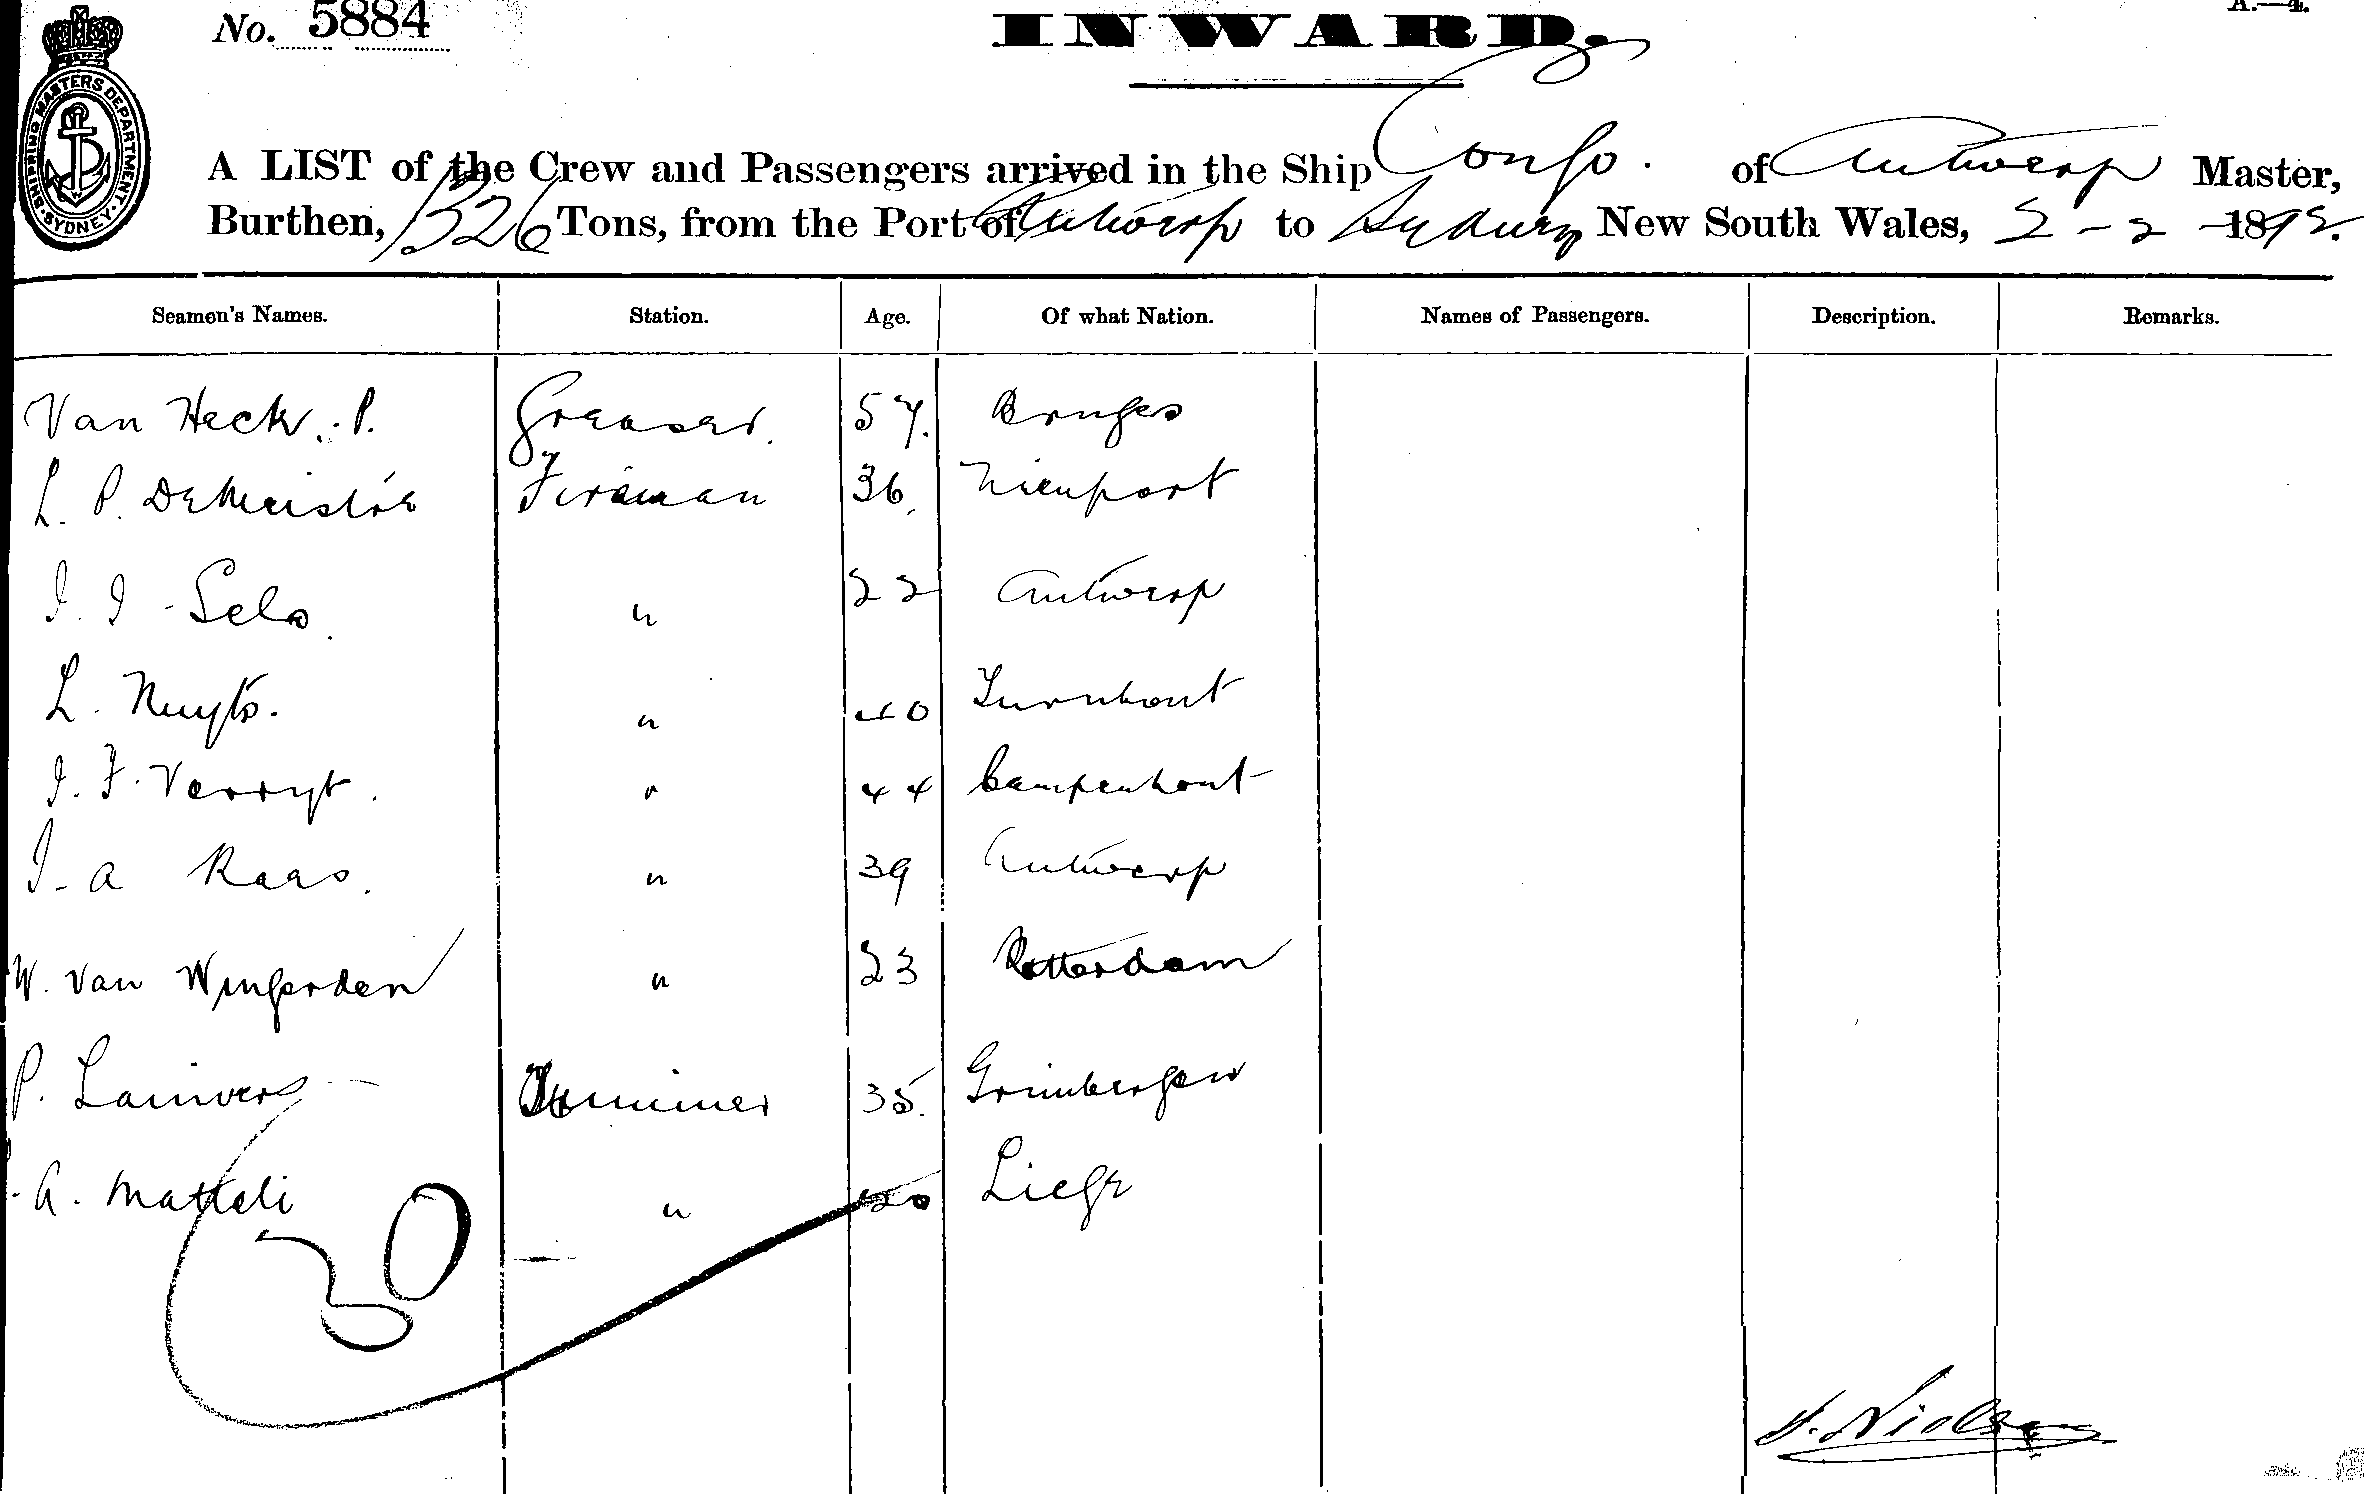 No. 5884
INWARD.
A.—4.
SHIPPING MASTERS DEPARTMENT. SYDNEY.
A LIST of the Crew and Passengers arrived in the Ship Congo. of Antwerp Master,
Burthen, 1326 Tons, from the Port of Antwerp to Sydney New South Wales, 2 - 2 - 1892.
Seamen's Names. Station. Age. Of what Nation. Names of Passengers. Description. Remarks.
Van Heck, P. Greaser. 57. Bruges
L. P. DeMeistre Fireman 36. Nieuport
J. J. Sels. " 22 Antwerp
L. Nuyts. " 40 Turnhout
J. F. Verryt. " 44 Campenhout
J. A Raas. " 39 Antwerp
W. Van Wingerden " 23 Rotterdam
P. Lauwers Trimmer 35. Grimbergen
A. Matteli " 20 Liege
20